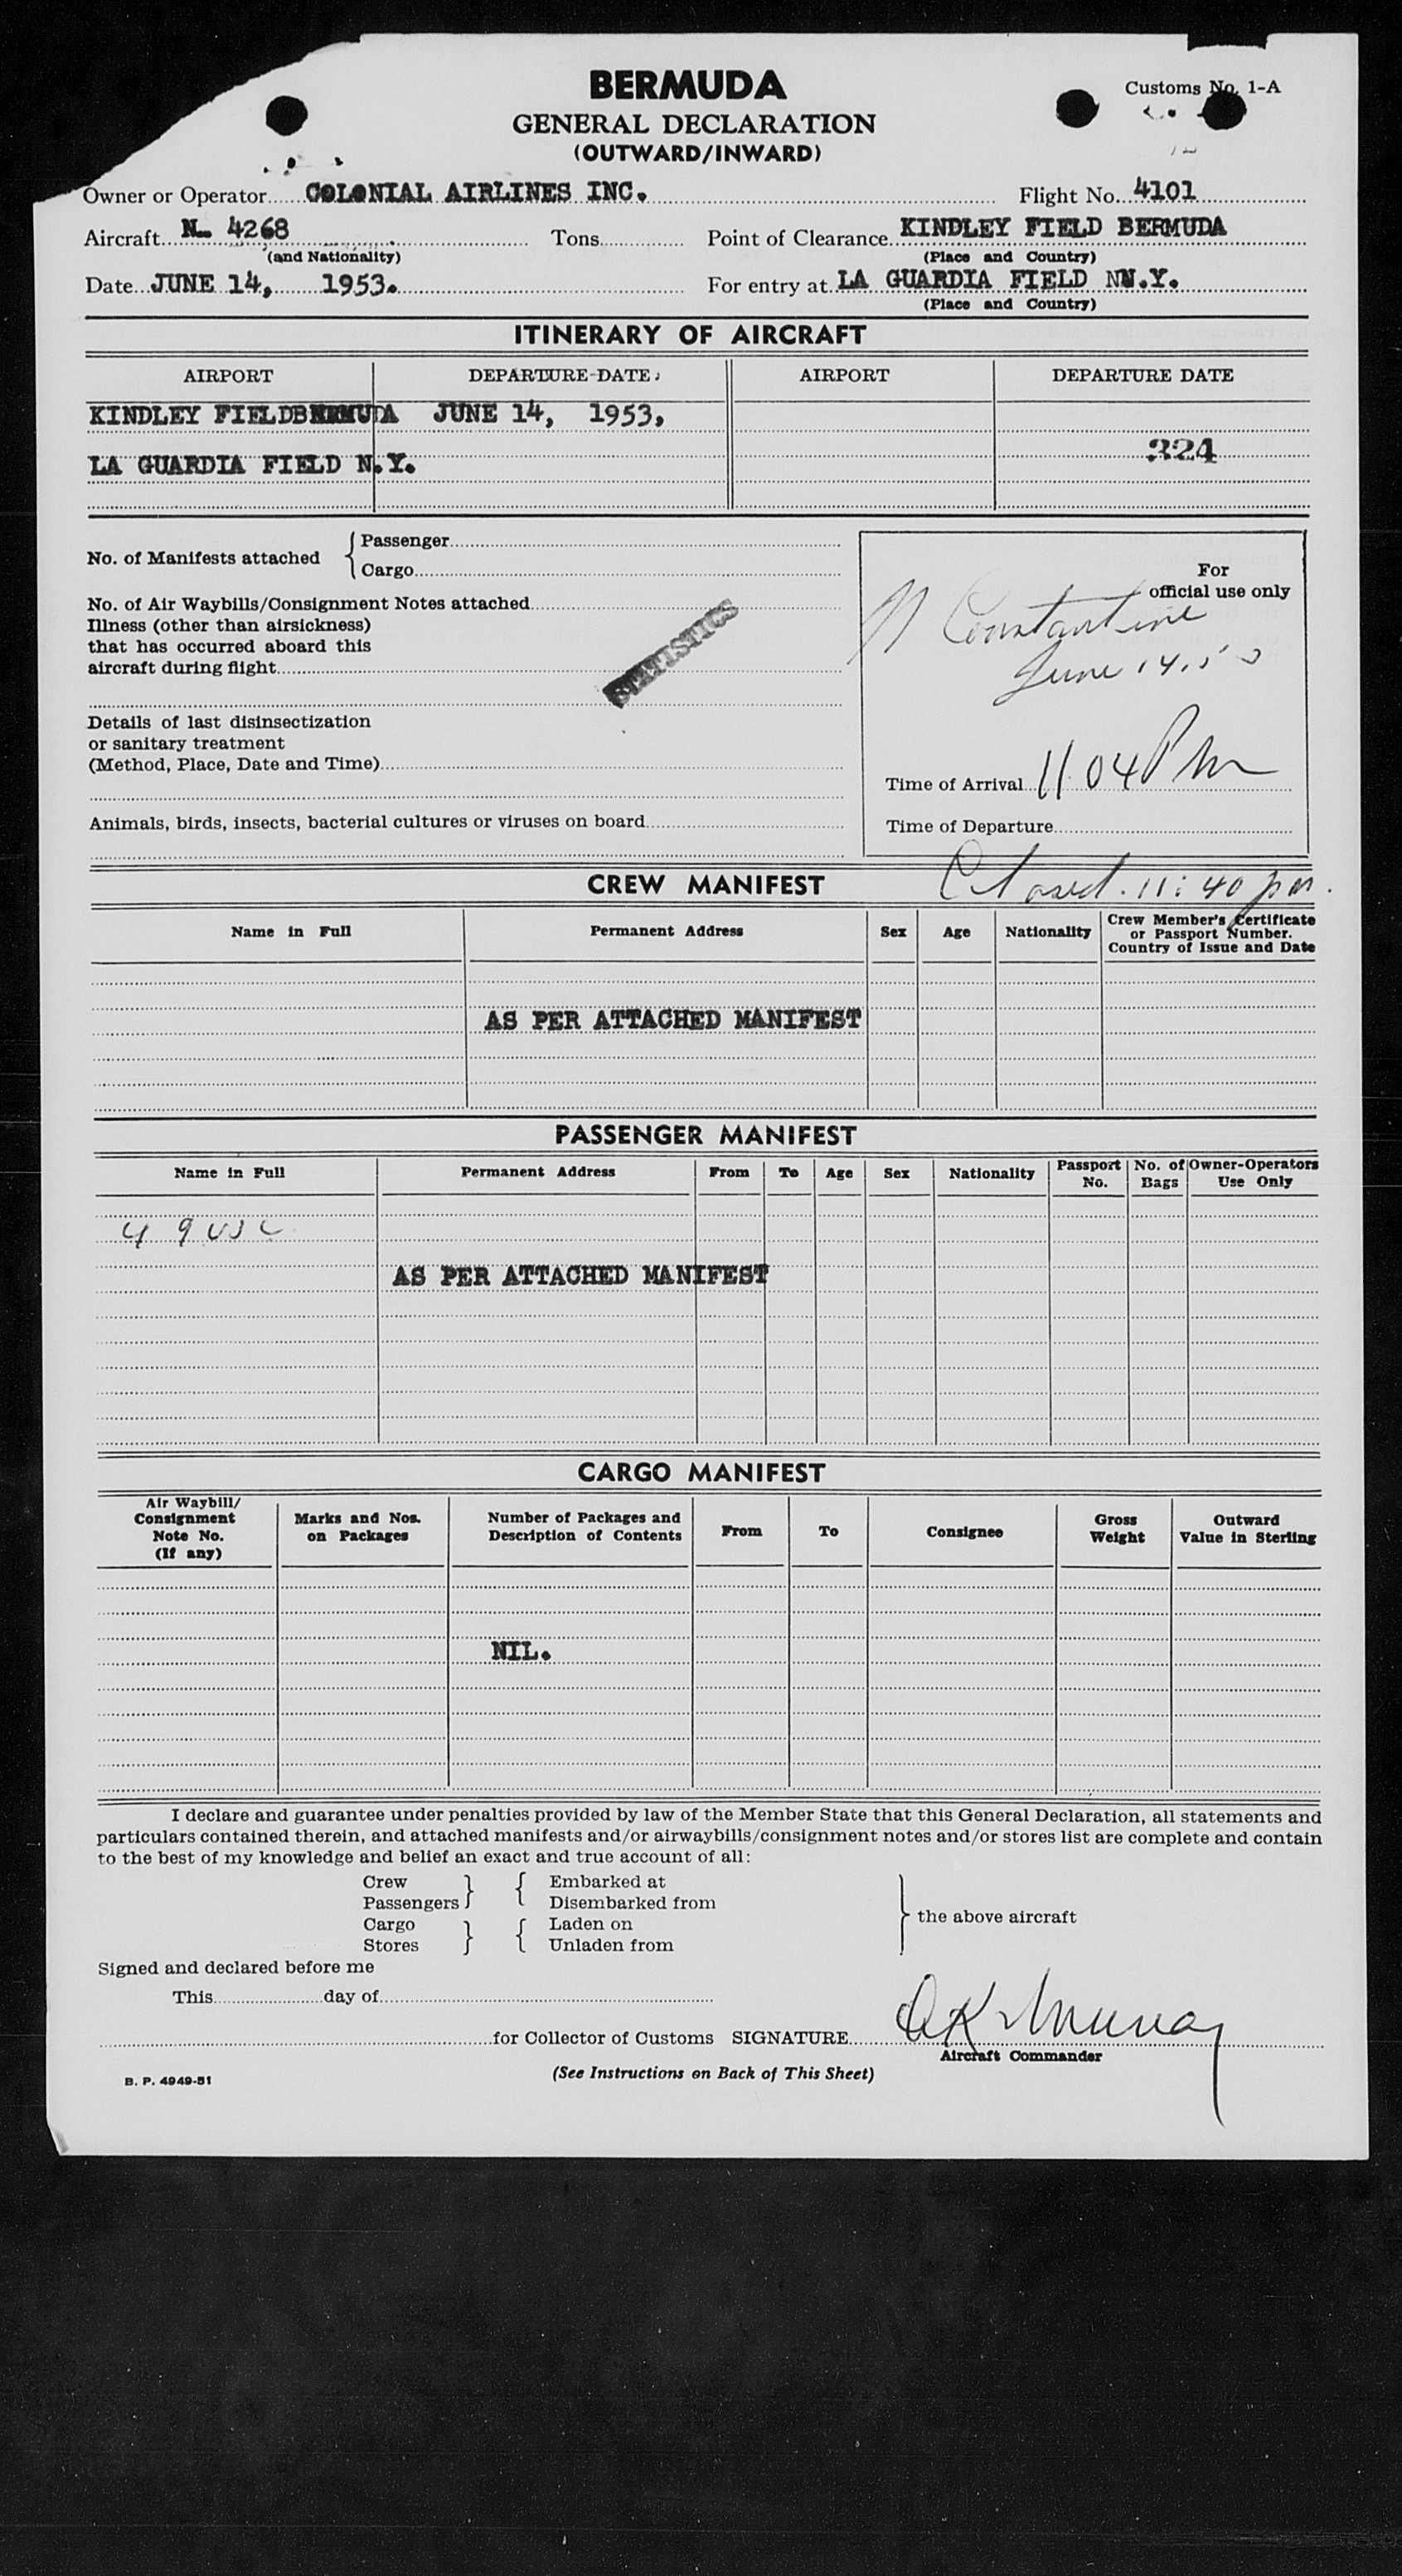 BERMUDA
Customs No. 1-A
GENERAL DECLARATION
(OUTWARD/INWARD)
Owner or Operator COLONIAL AIRLINES INC. Flight No. 4101
Aircraft N 4268 Tons Point of Clearance KINDLEY FIELD BERMUDA
(and Nationality) (Place and Country)
Date JUNE 14, 1953. For entry at LA GUARDIA FIELD N.Y.
(Place and Country)
ITINERARY OF AIRCRAFT
AIRPORT DEPARTURE DATE AIRPORT DEPARTURE DATE
KINDLEY FIELD BERMUDA JUNE 14, 1953,
324
LA GUARDIA FIELD N.Y.
No. of Manifests attached
Passenger
Cargo
No. of Air Waybills/Consignment Notes attached
Illness (other than airsickness)
that has occurred aboard this
aircraft during flight
STATISTICS
Details of last disinsectization
or sanitary treatment
(Method, Place, Date and Time)
Animals, birds, insects, bacterial cultures or viruses on board
For
official use only
Constantine
June 14.53
Time of Arrival 11 04 PM
Time of Departure
Closed. 11:40 pm.
CREW MANIFEST
Name in Full Permanent Address Sex Age Nationality Crew Member's Certificate
or Passport Number.
Country of Issue and Date
AS PER ATTACHED MANIFEST
PASSENGER MANIFEST
Name in Full Permanent Address From To Age Sex Nationality Passport No. No. of Bags Owner-Operators Use Only
49 USC
AS PER ATTACHED MANIFEST
CARGO MANIFEST
Air Waybill/
Consignment
Note No.
(If any)
Marks and Nos.
on Packages
Number of Packages and
Description of Contents
From To Consignee
Gross
Weight
Outward
Value in Sterling
NIL.
I declare and guarantee under penalties provided by law of the Member State that this General Declaration, all statements and
particulars contained therein, and attached manifests and/or airwaybills/consignment notes and/or stores list are complete and contain
to the best of my knowledge and belief an exact and true account of all:
Crew Embarked at
Passengers Disembarked from
Cargo Laden on
the above aircraft
Stores Unladen from
Signed and declared before me
This day of
for Collector of Customs SIGNATURE
Murray
Aircraft Commander
(See Instructions on Back of This Sheet)
B. P. 4949-51